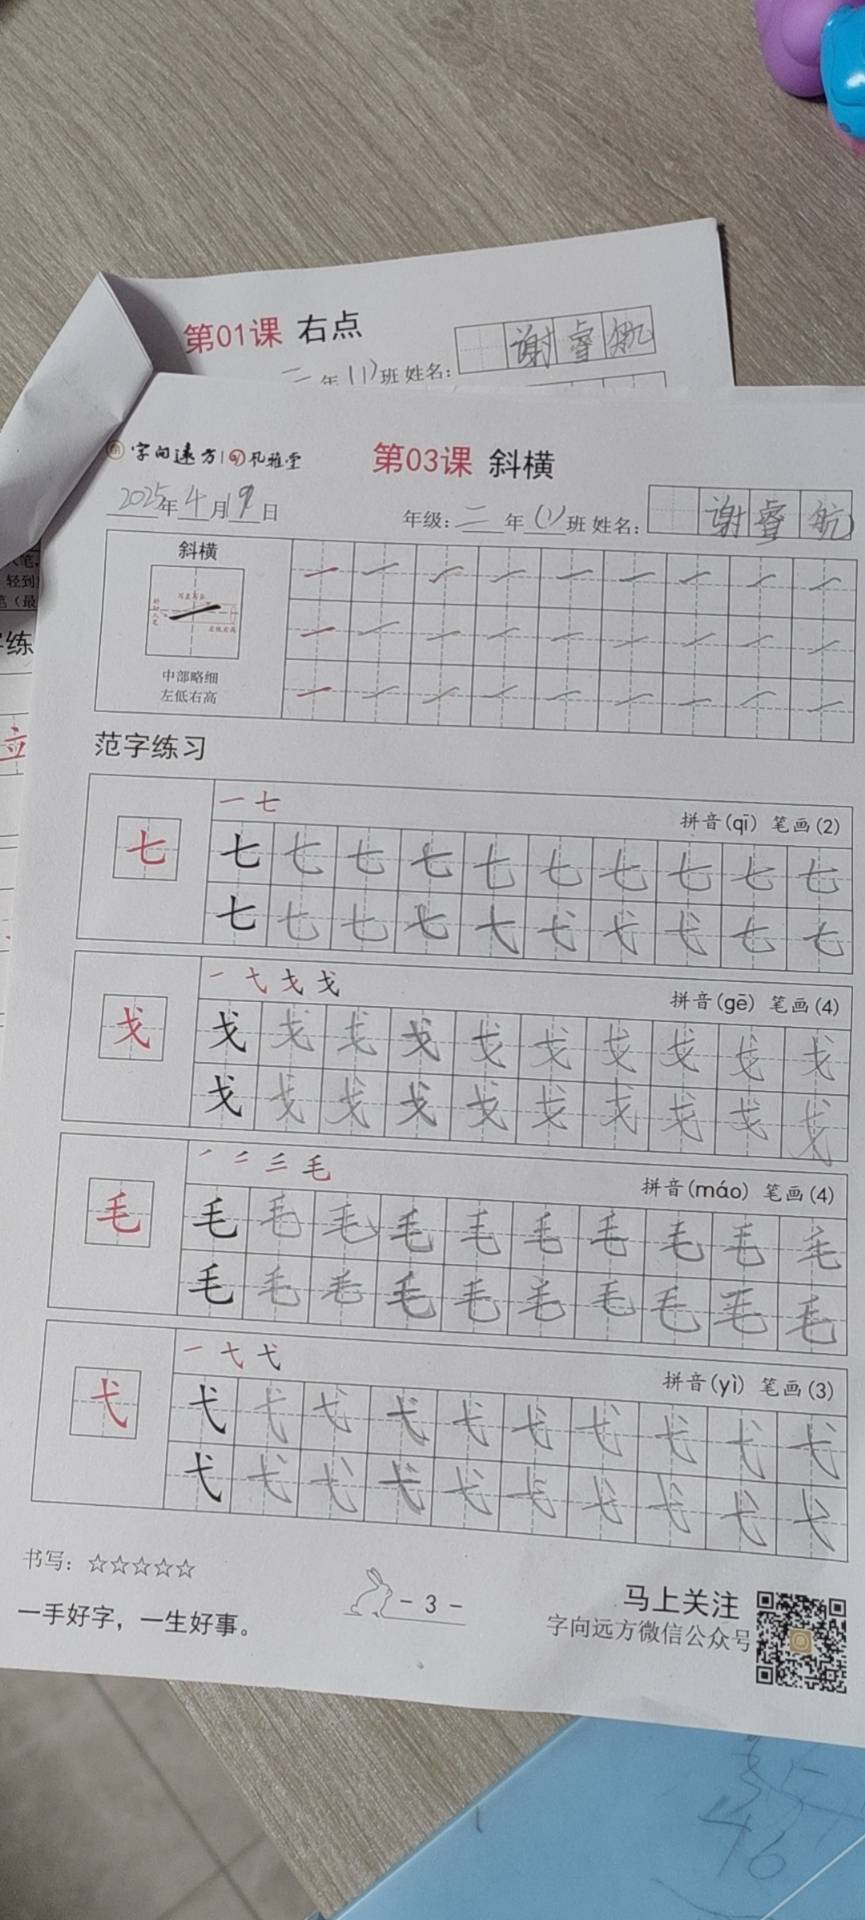 第01课 右点
二年(1)班 姓名: 谢睿航
字向远方 孔雅堂
第03课 斜横
2025年4月19日 年级:二年(1)班 姓名: 谢睿航
斜横
中部略细
左低右高
范字练习
一 七 拼音(qī) 笔画(2)
七 七 七 七 七 七 七 七 七 七 七
七 七 七 七 七 弋 弋 弋 七 七
一 弋 戈 戈 拼音(gē) 笔画(4)
戈 戈 戈 戈 戈 戈 戈 戈 戈 戈 戈
戈 戈 戈 戈 戈 戈 戈 戈 戈 戈
拼音(máo) 笔画(4)
毛 毛 毛 毛 毛 毛 毛 毛 毛 毛 毛
毛 毛 毛 毛 毛 毛 毛 毛 毛 毛
一 弋 弋 拼音(yì) 笔画(3)
弋 弋 弋 弋 弋 弋 弋 弋 弋 弋 弋
弋 弋 弋 弋 弋 弋 弋 弋 弋 弋
书写: ☆☆☆☆☆
一手好字，一生好事。
- 3 -
马上关注
字向远方微信公众号
轻到
笔（最
字练
立
35
46